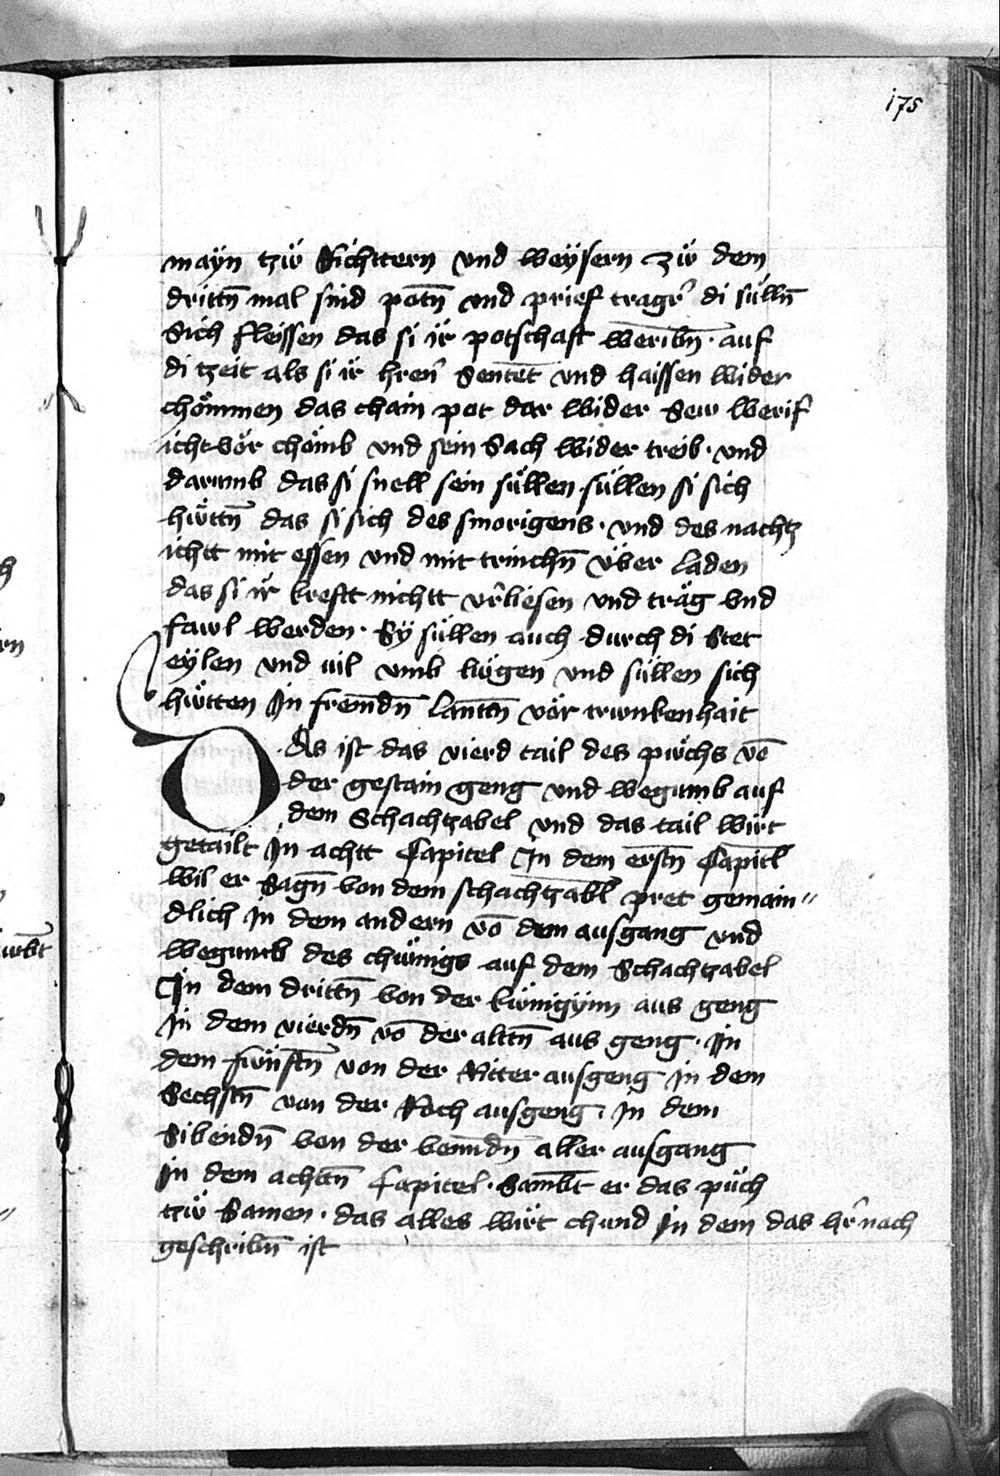 175
mayn tzẅ Richttern vnd weÿsern zẅ dem
drittn̄ mal sind potn̄ vnd prief tragr̄ di sülln̄
Sich fleissen das si ir̈ potschaft weribn̄ · auf
di tzeit als si ir̈ hren̄ Sentet̄ vnd haissen wider
chömmen das chain pot dar wider Sew werif
icht vör chömb vnd sein Sach wider treib · vnd
darumb das si snell sein süllen · süllen si sich
hẅttn̄ das si sich des smorigens · vnd des nachtz
ichtt mit essen vnd mit trinchn̄ v̈ber laden
das si ir̈ krefft nichtt vr̄liesen vnd träg vnd
fawl werden · Sÿ süllen auch durch di Stet
eÿlen vnd vil vmb lügen vnd süllen sich
hẅtten In fremdn̄ lanttn̄ vör trunkenhait
Das ist das vierd tail des pẅchs vō
der gestain geng vnd wegumb auf
dem Schachtzabel vnd das tail wirt
getailt In achtt Capitel In dem erstn̄ Capitl̄
wil er Sagn̄ von dem schachtzabl̄ pret gemain〃
dlich in dem andern vō dem ausgang vnd
wegumb des chünigs auf dem Schachtzabel
In dem drittn̄ von der künigÿnn aus geng
In dem vierdn̄ vō der alttn̄ aus geng · In
dem fẅnftn̄ von der Ritter ausgeng in dem
Sechstn̄ von der Roch ausgeng · in dem
Sibendn̄ von der venndn̄ aller ausgang
In dem achttn̄ Capitel · Sambt er das püch
tzẅ Samen · das alles wirt chund In dem das hr̄nach
geschribn̄ ist